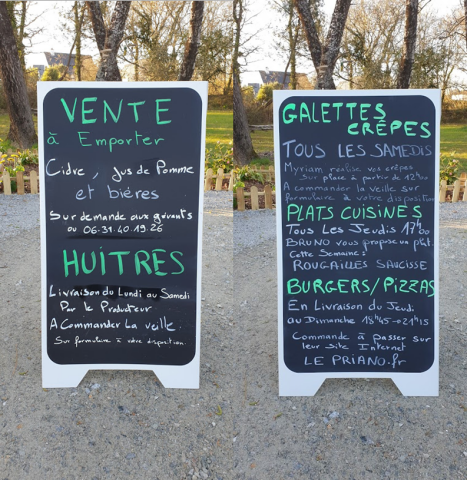 VENTE
à Emporter
Cidre, jus de Pomme
et bières
Sur demande aux gérants
ou 06.31.40.19.26
HUITRES
Livraison du Lundi au Samedi
Par le Producteur
A Commander La veille.
Sur formulaire à votre disposition.
GALETTES
CRÊPES
TOUS LES SAMEDIS
Myriam réalise vos crêpes
Sur place à partir de
A commander la veille sur
formulaire à votre disposition
PLATS CUISINÉS
Tous Les Jeudis 17h00
BRUNO vous propose un plat.
Cette Semaine:
ROUGAILLES SAUCISSE
BURGERS/PIZZAS
En Livraison du Jeudi
au Dimanche 18h45-21h15
Commande à passer sur
leur Site Internet
LE PRIANO.fr